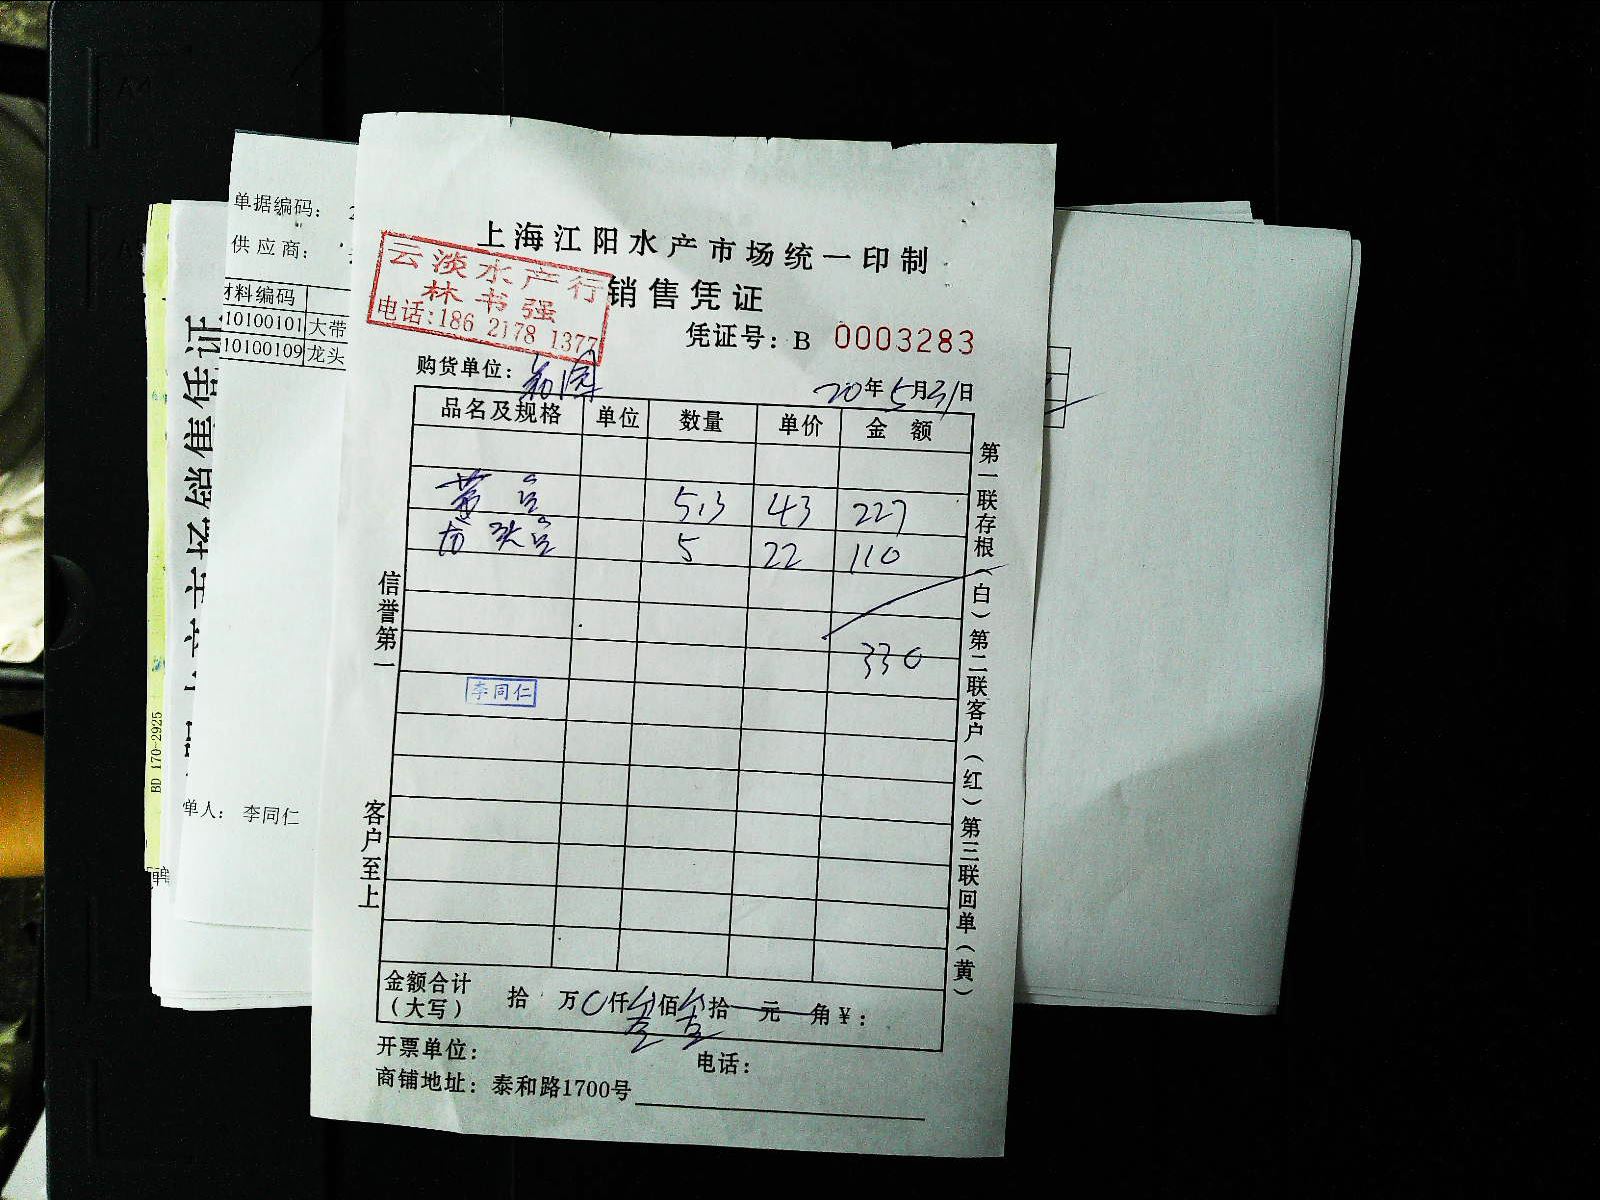 上海江阳水产市场统一印制
销售凭证
云淡水产行
林书强
电话:186 2178 1377
凭证号: B 0003283
购货单位:
20年5月31日
品名及规格 单位 数量 单价 金额
带鱼 5.3 43 227
龙头鱼 5 22 110
330
李同仁
信誉第一
客户至上
第一联存根(白)第二联客户(红)第三联回单(黄)
金额合计
(大写) 拾 万0仟叁佰叁拾 元 角¥:
开票单位: 电话:
商铺地址: 泰和路1700号
单据编码: 2
供应商:
材料编码
10100101 大带
10100109 龙头
单人: 李同仁
销售凭证
BD 170-2925